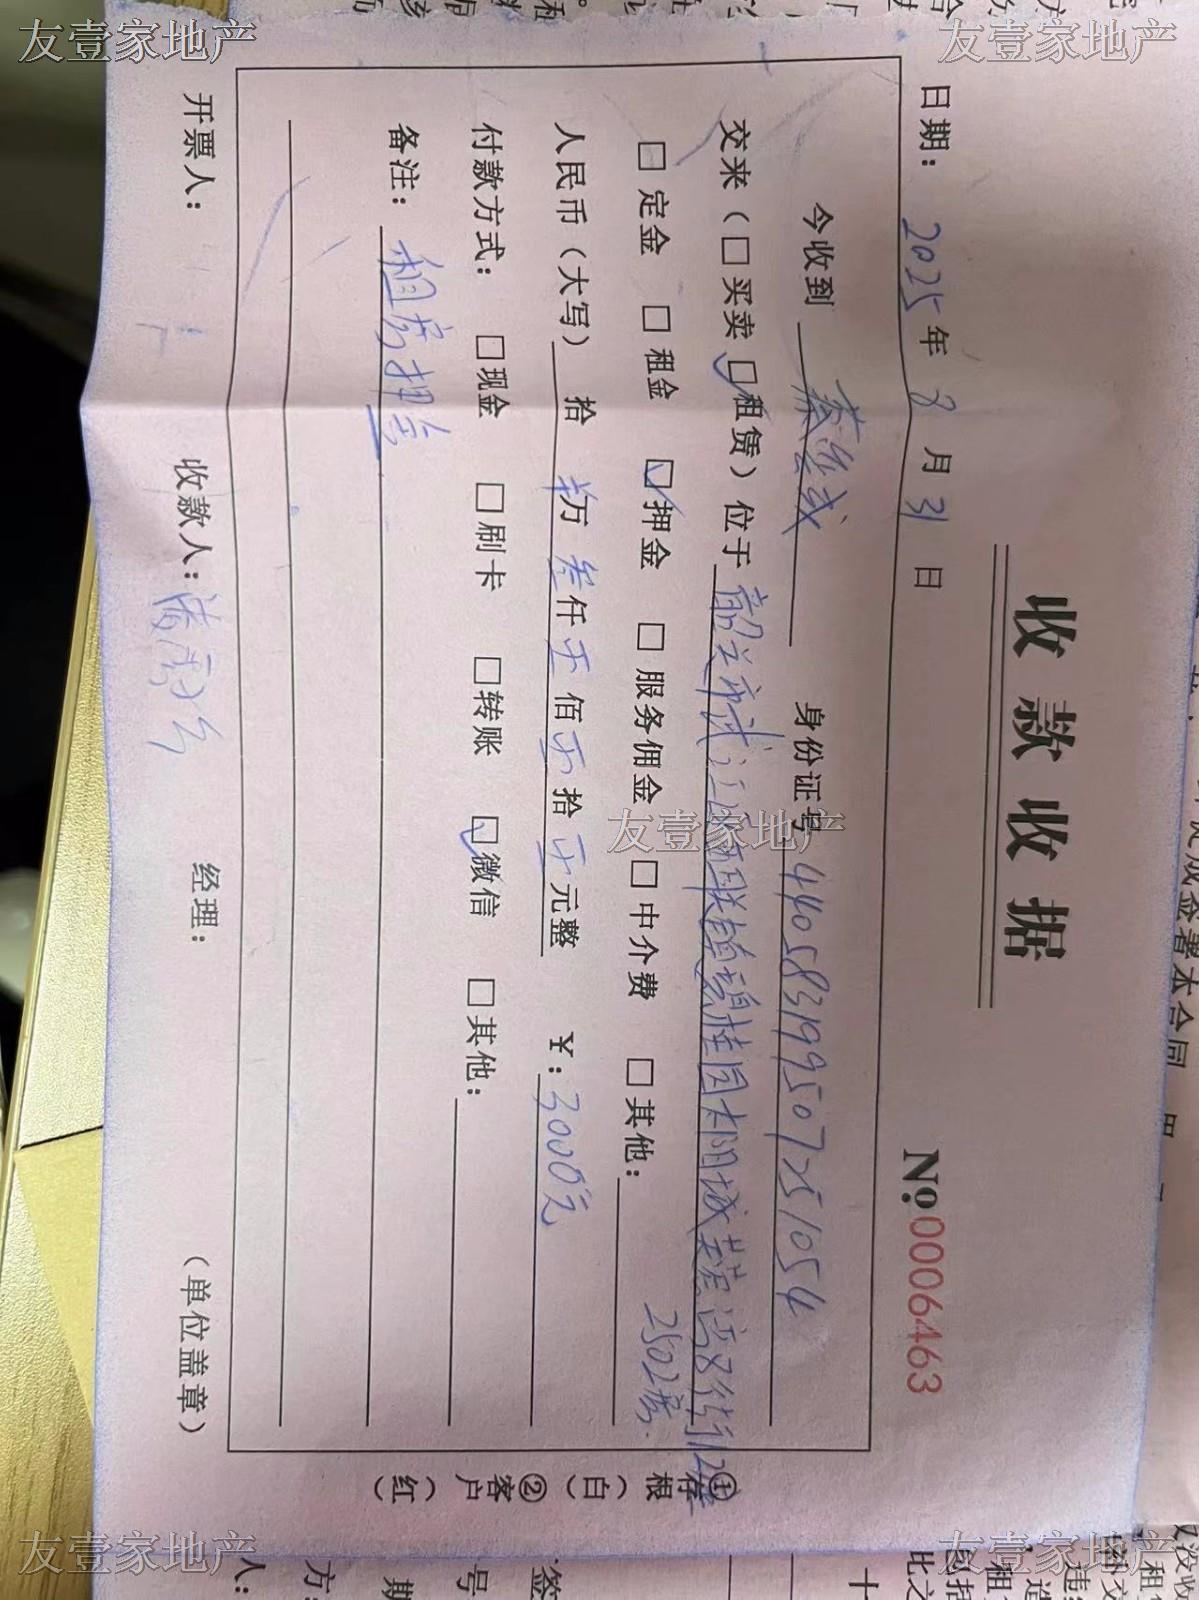 友壹家地产
友壹家地产
收款收据
№0006463
日期：2025年8月31日
今收到 身份证号 440583199507251054
交来（□买卖 ☑租赁）位于 韶关市浈江区 联镇碧桂园太阳城 2街12
2502房
□定金 □租金 ☑押金 □服务佣金 □中介费 □其他：
人民币（大写） 拾 万 叁仟零佰零拾零元整 ￥：3000元
付款方式： □现金 □刷卡 □转账 ☑微信 □其他：
备注：租房押金
开票人： 收款人： 经理： （单位盖章）
①存根（白）②客户（红）
友壹家地产
友壹家地产
友壹家地产